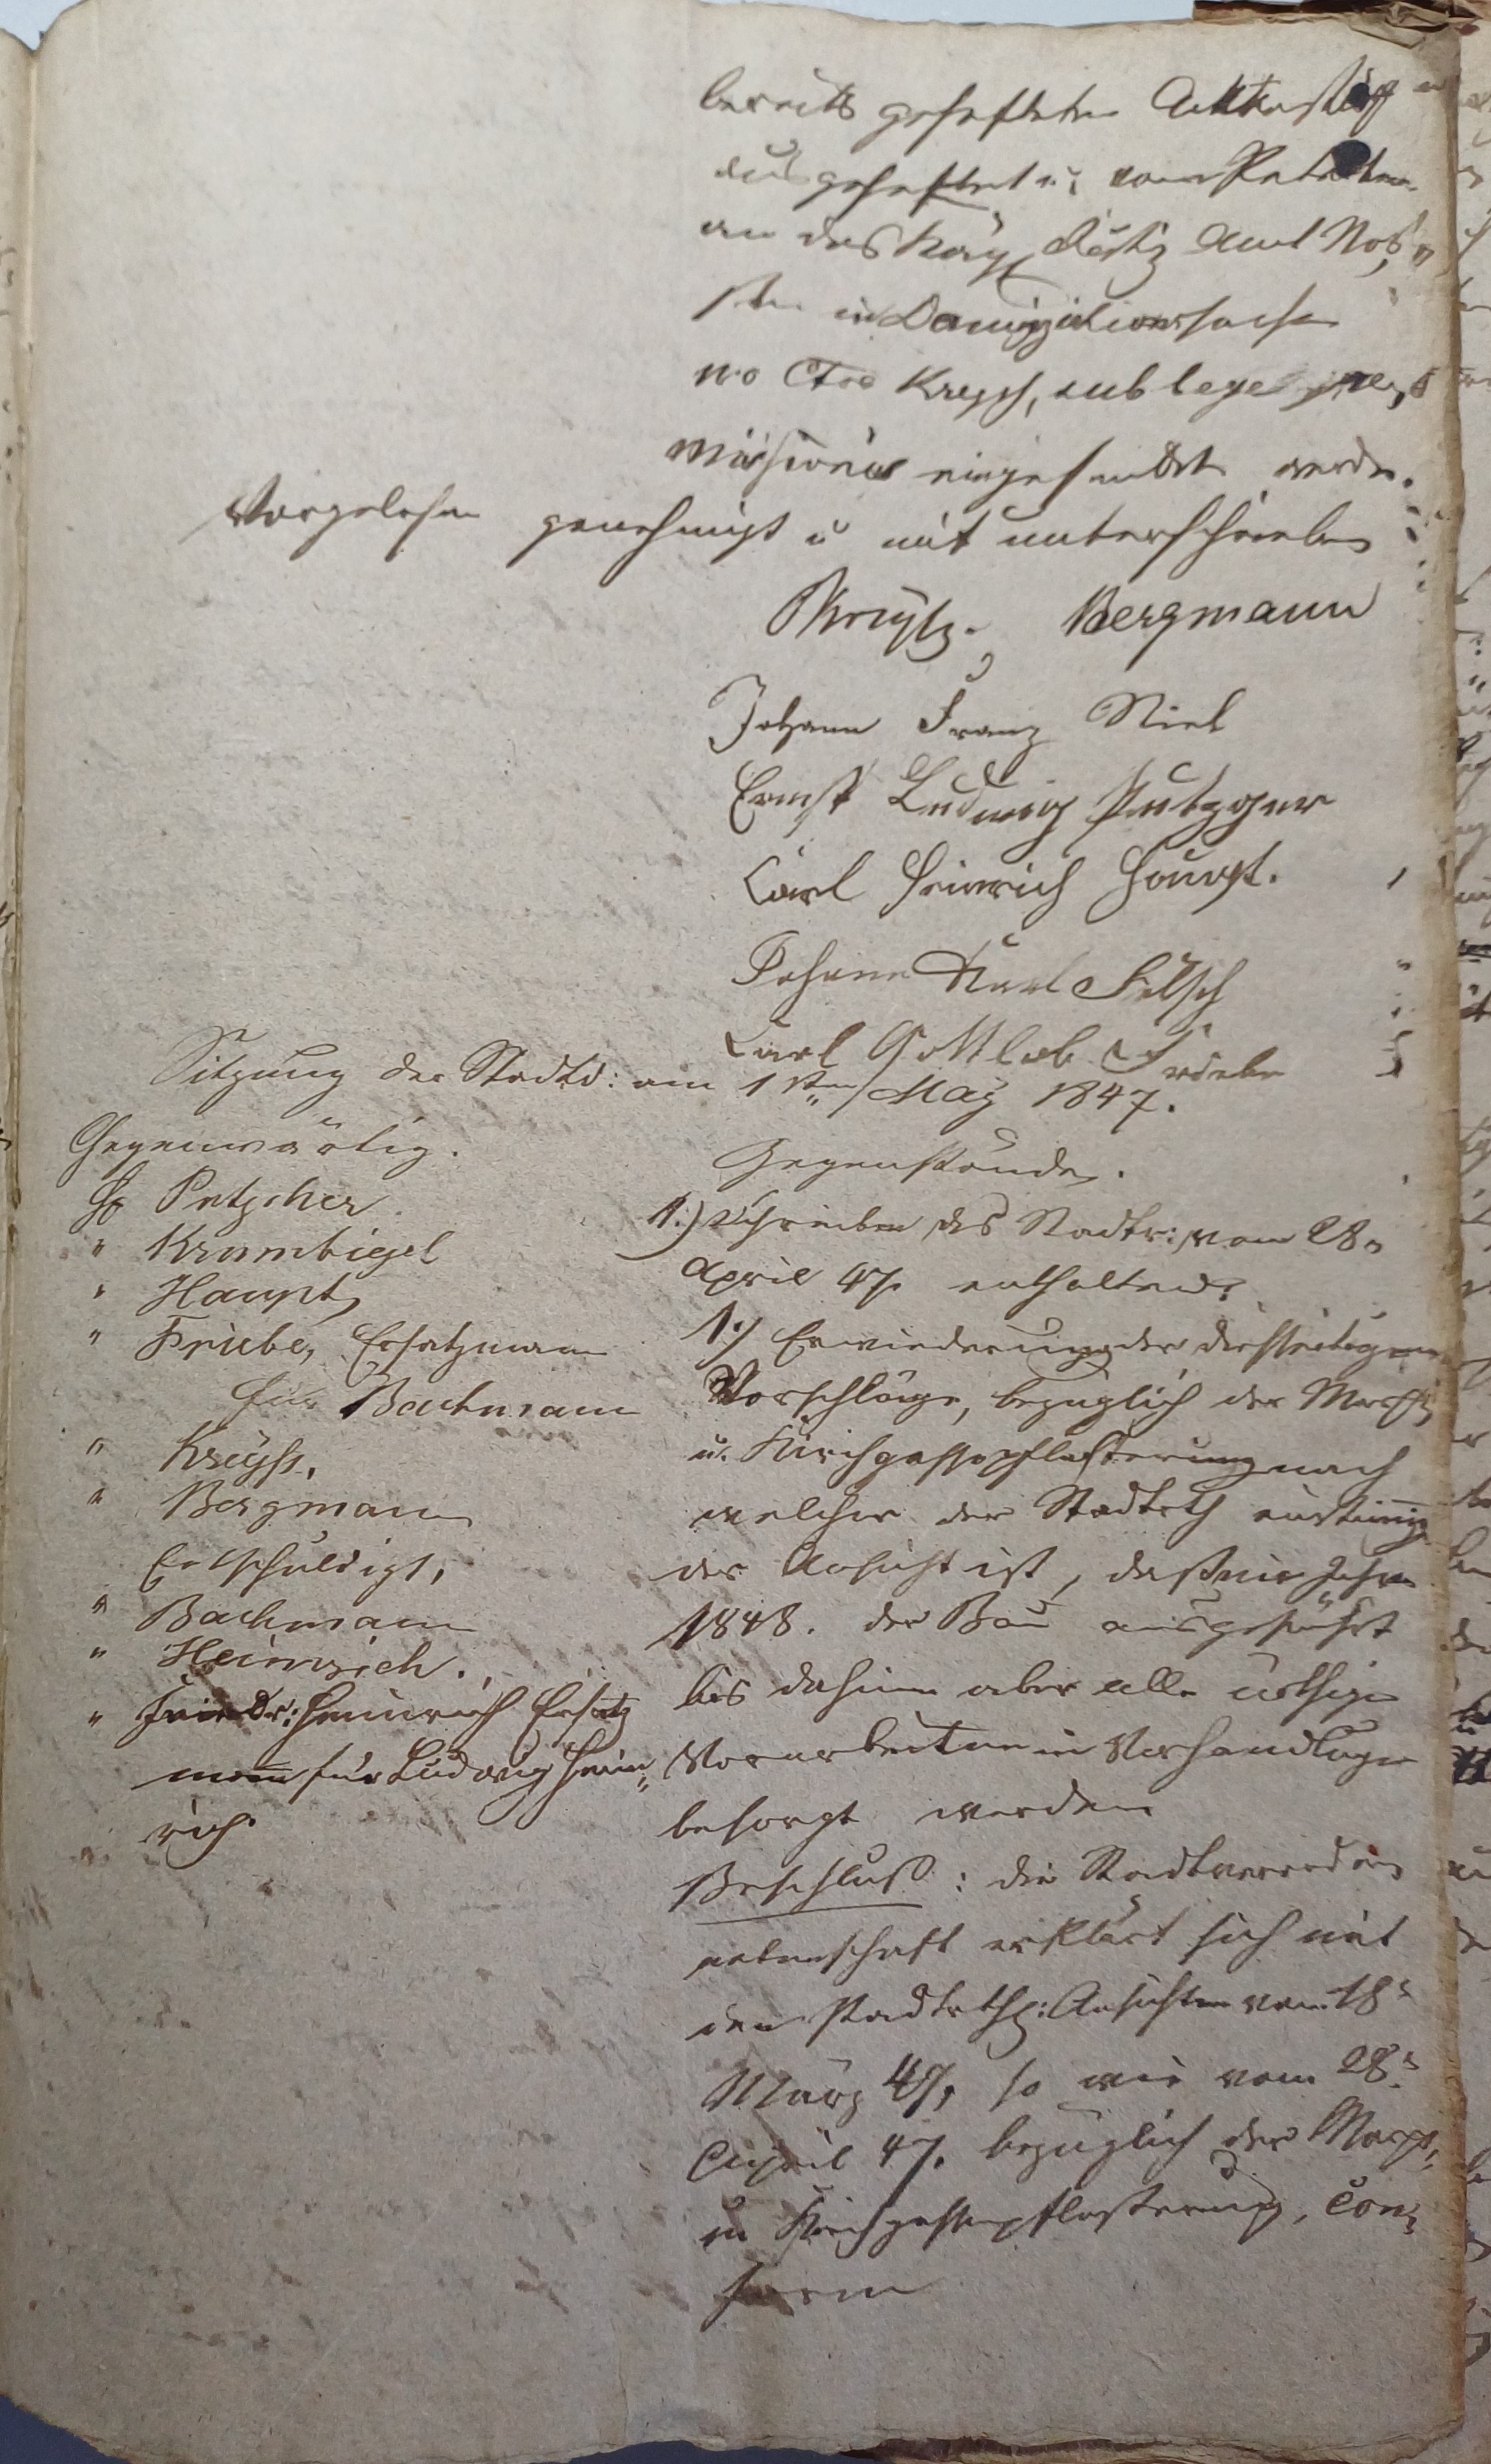 bereits gehefteten
ausgeheftet u. vom
an das Kög. Justiz Amt Nos„
sen in
no Ctro Kreyß, sub lege
missionis eingesendet werde.
Vorgelesen genehmigt u mit unterschrieben
Kreyß. Bergmann
Johann Franz
Ernst Ludwig Putzger
Carl Heinrich Haupt.
Johann Karl
Carl Gottlob Friebe
Sitzung der Stadtv: am 1sten May 1847.
Gegenwärtig.
H Petzscher
" Krumbiegel
" Haupt,
" Friebe, Ersatzmann
für Bachmann
" Kreyß,
" Bergmann
Entschuldigt,
" Bachmann
" Heinrich.
" Friedr: Heinrich Ersatz
mann für Ludwig Hein„
rich.
Gegenstände.
1.) Schreiben des Stadtr: vom 28.
April 47. enthaltend:
1.) Erwiederung der diesseitigen
Vorschläge, bezüglich der Markt
u. Kirchgassepflasterung nach
welcher der Stadtrth einstimig
der Ansicht ist, daß im Jahre
1848. der Bau ausgeführt
bis dahinn aber alle nöthige
Vorarbeiten in Verhandlugn
besorgt werden
Beschluß: die Stadtverord
netenschaft erklärt sich mit
den stadtrthl: Ansichten vom 18.
März 47, so wie vom 28.
April 47. bezüglich der Markt,
u Kirchgassepflasterung, con„
form